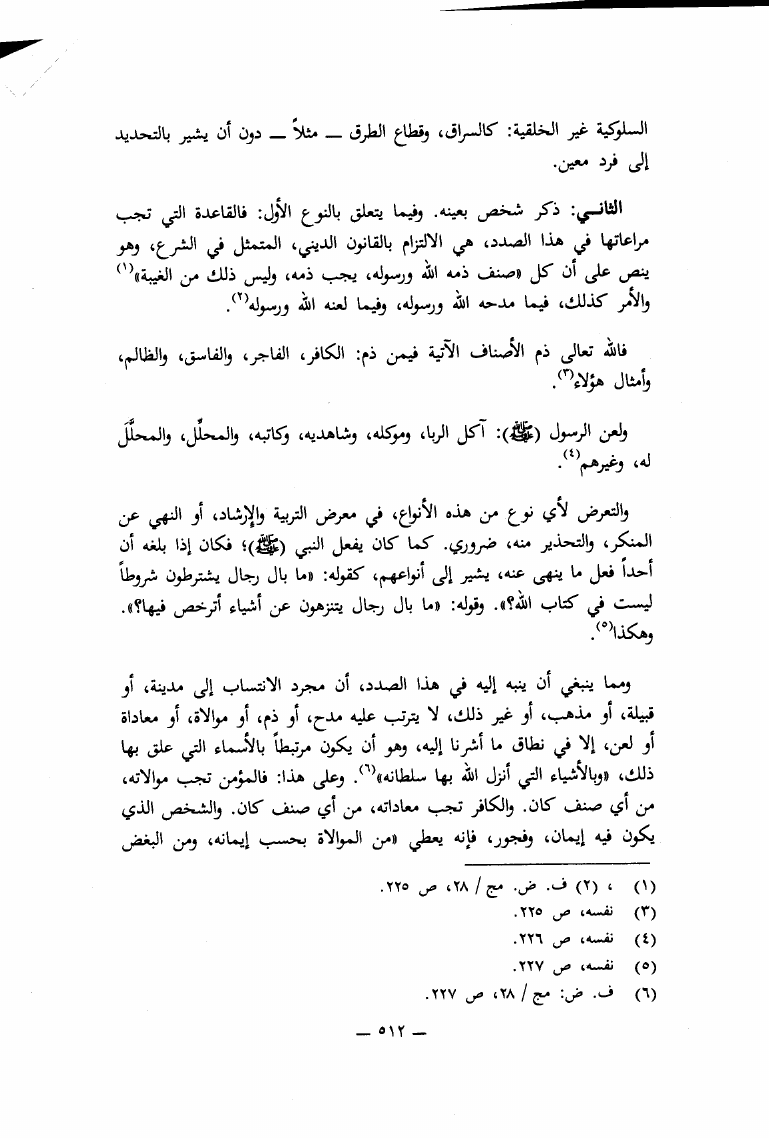 السلوكية غير الخلقية: كالسراق، وقطاع الطرق ــ مثلاً ــ دون أن يشير بالتحديد
إلى فرد معين.
الثانـي: ذكر شخص بعينه. وفيما يتعلق بالنوع الأول: فالقاعدة التي تجب
مراعاتها في هذا الصدد، هي الالتزام بالقانون الديني، المتمثل في الشرع، وهو
ينص على أن كل «صنف ذمه الله ورسوله، يجب ذمه، وليس ذلك من الغيبة»(١)
والأمر كذلك، فيما مدحه الله ورسوله، وفيما لعنه الله ورسوله(٢).
فالله تعالى ذم الأصناف الآتية فيمن ذم: الكافر، الفاجر، والفاسق، والظالم،
وأمثال هؤلاء(٣).
ولعن الرسول (ﷺ): آكل الربا، وموكله، وشاهديه، وكاتبه، والمحلِّل، والمحلَّلَ
له، وغيرهم(٤).
والتعرض لأي نوع من هذه الأنواع، في معرض التربية والإرشاد، أو النهي عن
المنكر، والتحذير منه، ضروري. كما كان يفعل النبي (ﷺ)؛ فكان إذا بلغه أن
أحداً فعل ما ينهى عنه، يشير إلى أنواعهم، كقوله: «ما بال رجال يشترطون شروطاً
ليست في كتاب الله؟». وقوله: «ما بال رجال يتنزهون عن أشياء أترخص فيها؟».
وهكذا(٥).
ومما ينبغي أن ينبه إليه في هذا الصدد، أن مجرد الانتساب إلى مدينة، أو
قبيلة، أو مذهب، أو غير ذلك، لا يترتب عليه مدح، أو ذم، أو موالاة، أو معاداة
أو لعن، إلا في نطاق ما أشرنا إليه، وهو أن يكون مرتبطاً بالأسماء التي علق بها
ذلك، «وبالأشياء التي أنزل الله بها سلطانه»(٦). وعلى هذا: فالمؤمن تجب موالاته،
من أي صنف كان. والكافر تجب معاداته، من أي صنف كان. والشخص الذي
يكون فيه إيمان، وفجور، فإنه يعطي «من الموالاة بحسب إيمانه، ومن البغض
(١) ، (٢) ف. ض. مج/ ٢٨، ص ٢٢٥.
(٣) نفسه، ص ٢٢٥.
(٤) نفسه، ص ٢٢٦.
(٥) نفسه، ص ٢٢٧.
(٦) ف. ض: مج/ ٢٨، ص ٢٢٧.
ــ ٥١٢ ــ